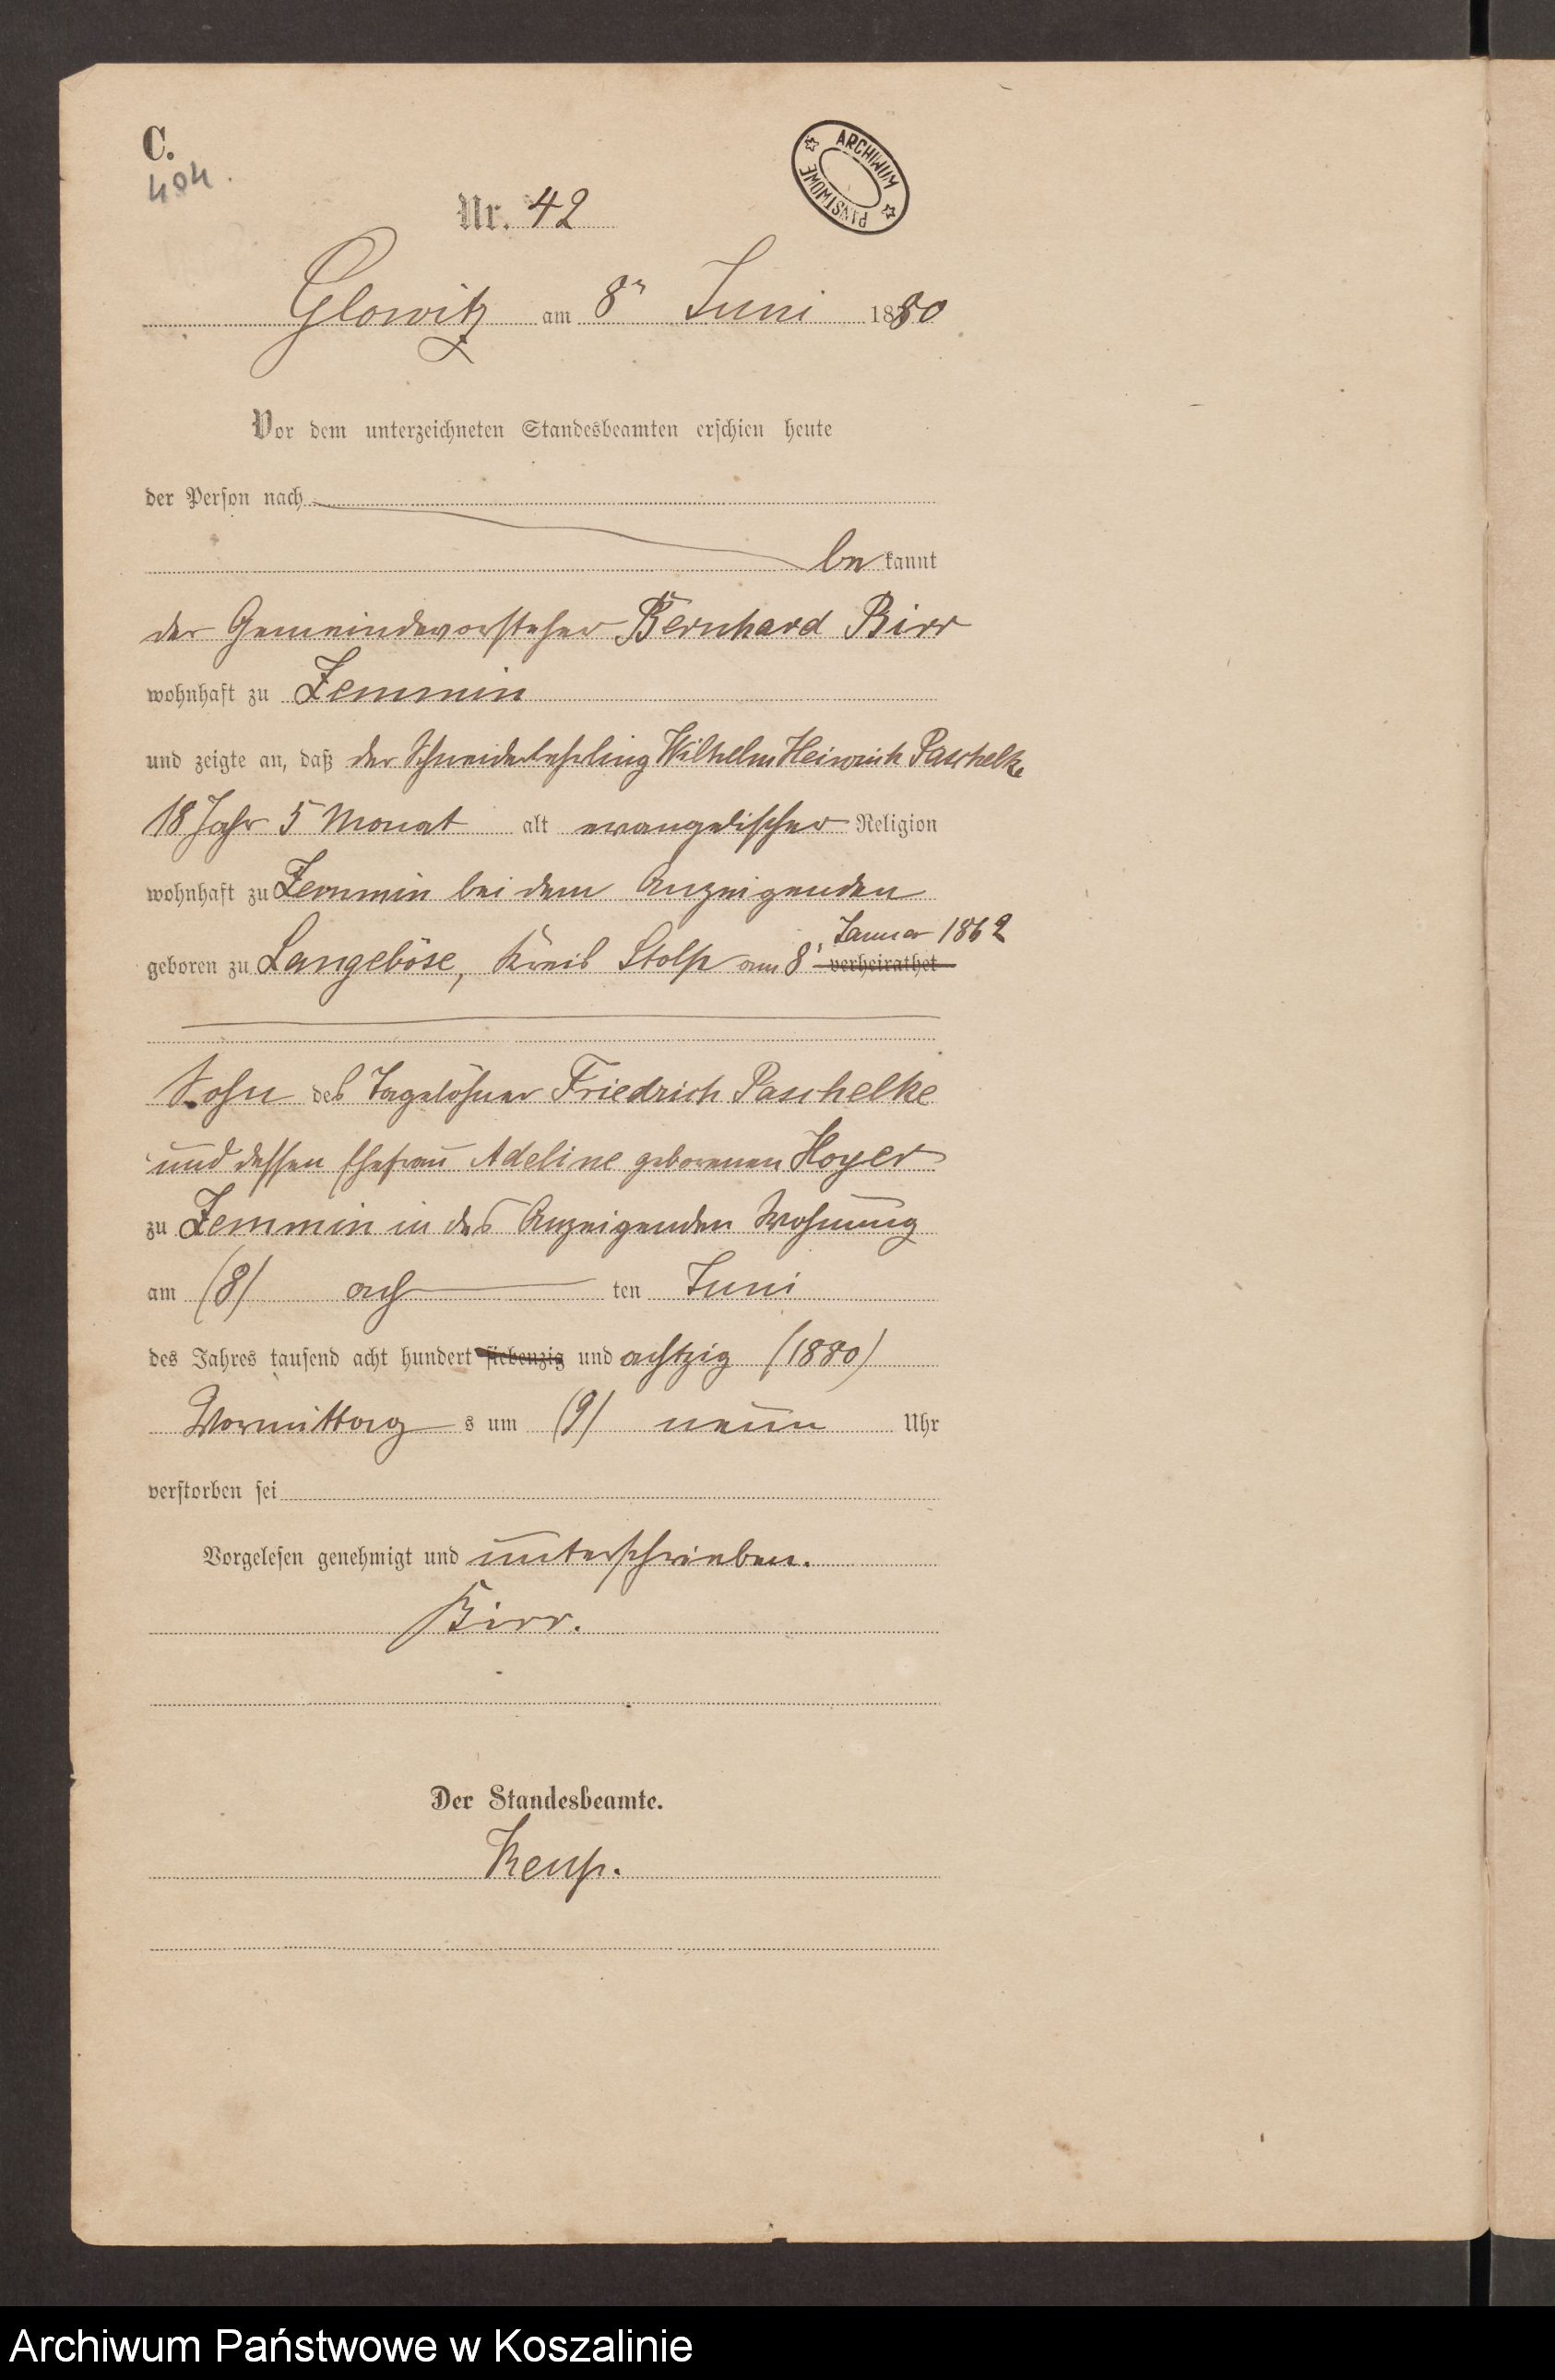 C.
494.
ARCHIWUM PAŃSTWOWE
Nr. 42
Glowitz am 8ⁿ Juni 1880
Vor dem unterzeichneten Standesbeamten erschien heute
der Person nach
be kannt
der Gemeindevorsteher Bernhard Birr
wohnhaft zu Zemmin
und zeigte an, daß der Schneiderlehrling Wilhelm Heinrich Paschelke
18 Jahr 5 Monat alt evangelischer Religion
wohnhaft zu Zemmin bei dem Anzeigenden
Januar 1862
geboren zu Langeböse, Kreis Stolp am 8' verheirathet
Sohn des Tagelöhner Friedrich Paschelke
und dessen Ehefrau Adeline geborenen Hoyer
zu Zemmin in des Anzeigenden Wohnung
am (8) ach ten Juni
des Jahres tausend acht hundert siebenzig und achtzig (1880)
Vormittag s um (9) neun Uhr
verstorben sei
Vorgelesen genehmigt und unterschrieben.
Birr.
Der Standesbeamte.
Archiwum Państwowe w Koszalinie